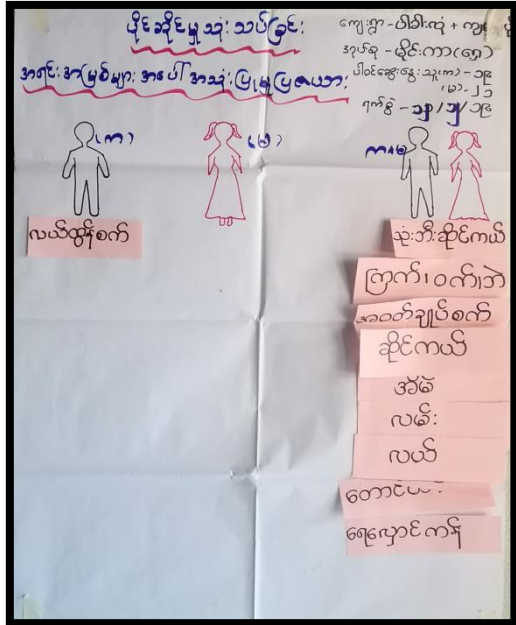 ပိုင်ဆိုင်မှု သုံးသပ်ခြင်း
အရင်းအမြစ်များ အပေါ် အသုံးပြုမှုပြဇယား
ကျေးရွာ - ပါဝါးထုံ +
အုပ်စု - မိုင်းကာ (ရှေ့)
ပါဝင်ဆွေးနွေးသူ (ကျား) - ၁၉
(မ) - ၂၁
ရက်စွဲ -
(ကျား)
(မ)
လယ်ထွန်စက်
သုံးဘီးဆိုင်ကယ်
ကြက်၊ဝက်၊ဘဲ
အဝတ်ချုပ်စက်
ဆိုင်ကယ်
အိမ်
လမ်း
လယ်
တောင်ယာ
ရေလှောင်ကန်